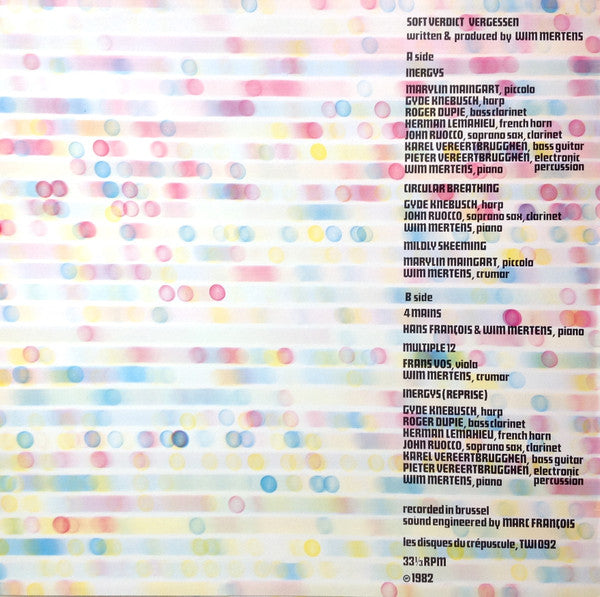 SOFT VERDICT VERGESSEN
written & produced by WIM MERTENS
A side
INERGYS
MARYLIN MAINGART, piccolo
GYDE KNEBUSCH, harp
ROGER DUPIE, bass clarinet
HERMAN LEMAHIEU, french horn
JOHN RUOCCO, soprano sax, clarinet
KAREL VEREERTBRUGGHEN, bass guitar
PIETER VEREERTBRUGGHEN, electronic
percussion
WIM MERTENS, piano
CIRCULAR BREATHING
GYDE KNEBUSCH, harp
JOHN RUOCCO, soprano sax, clarinet
WIM MERTENS, piano
MILDLY SKEEMING
MARYLIN MAINGART, piccolo
WIM MERTENS, crumar
B side
4 MAINS
HANS FRANÇOIS & WIM MERTENS, piano
MULTIPLE 12
FRANS VOS, viola
WIM MERTENS, crumar
INERGYS (REPRISE)
GYDE KNEBUSCH, harp
ROGER DUPIE, bass clarinet
HERMAN LEMAHIEU, french horn
JOHN RUOCCO, soprano sax, clarinet
KAREL VEREERTBRUGGHEN, bass guitar
PIETER VEREERTBRUGGHEN, electronic
percussion
WIM MERTENS, piano
recorded in brussel
sound engineered by MARC FRANÇOIS
les disques du crépuscule, TWI 092
33 1/3 RPM
℗ 1982